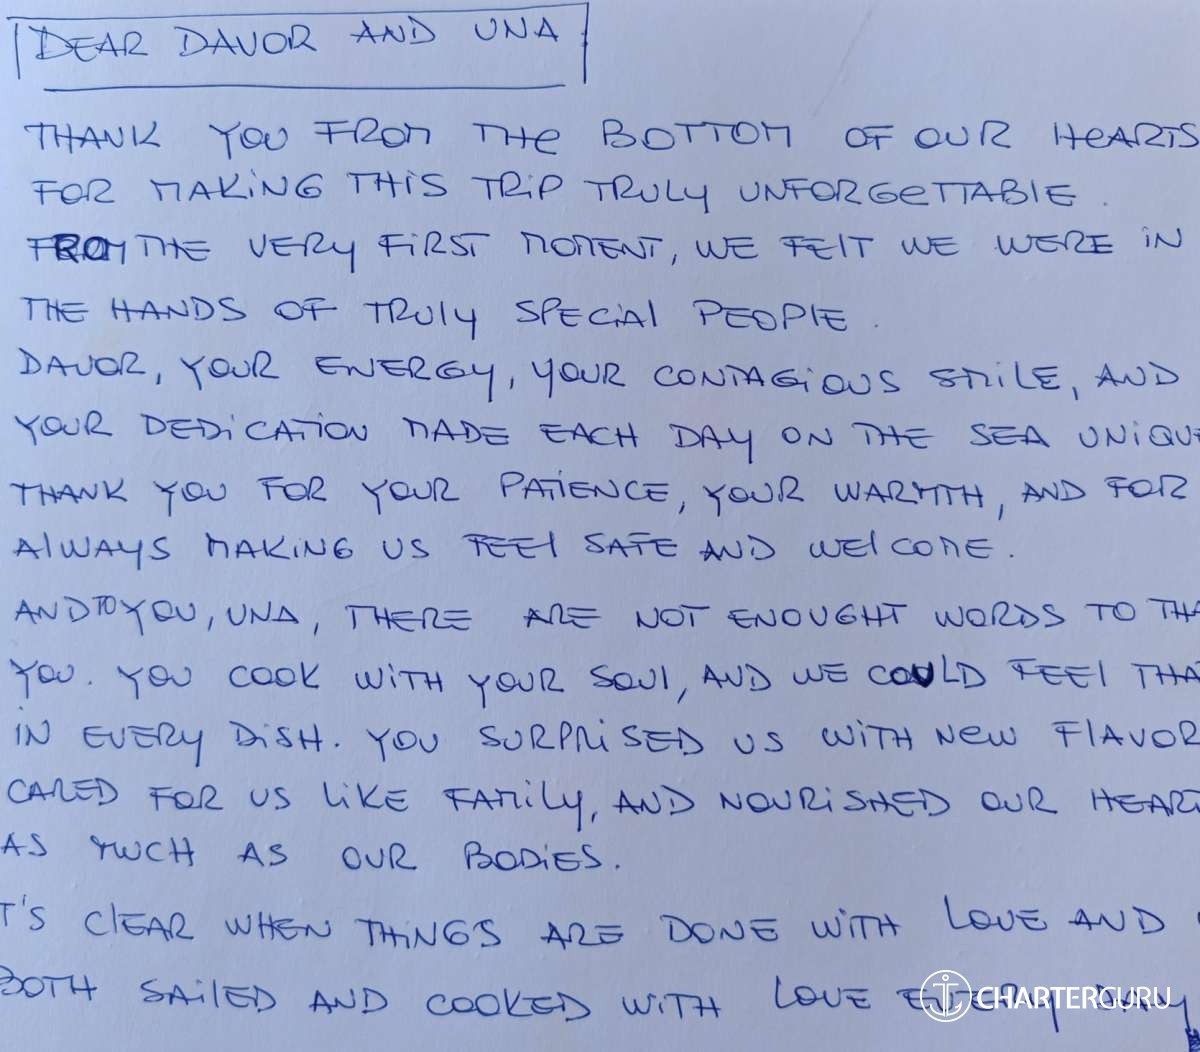 DEAR DAVOR AND UNA
THANK YOU FROM THE BOTTOM OF OUR HEARTS
FOR MAKING THIS TRIP TRULY UNFORGETTABLE.
FROM THE VERY FIRST MOMENT, WE FELT WE WERE IN
THE HANDS OF TRULY SPECIAL PEOPLE.
DAVOR, YOUR ENERGY, YOUR CONTAGIOUS SMILE, AND
YOUR DEDICATION MADE EACH DAY ON THE SEA UNIQUE
THANK YOU FOR YOUR PATIENCE, YOUR WARMTH, AND FOR
ALWAYS MAKING US FEEL SAFE AND WELCOME.
AND TO YOU, UNA, THERE ARE NOT ENOUGHT WORDS TO
YOU. YOU COOK WITH YOUR SOUL, AND WE COULD FEEL
IN EVERY DISH. YOU SURPRISED US WITH NEW FLAVOR
CARED FOR US LIKE FAMILY, AND NOURISHED OUR HEART
AS MUCH AS OUR BODIES.
T'S CLEAR WHEN THINGS ARE DONE WITH LOVE AND
BOTH SAILED AND COOKED WITH LOVE EVERY DAY
CHARTERGURU